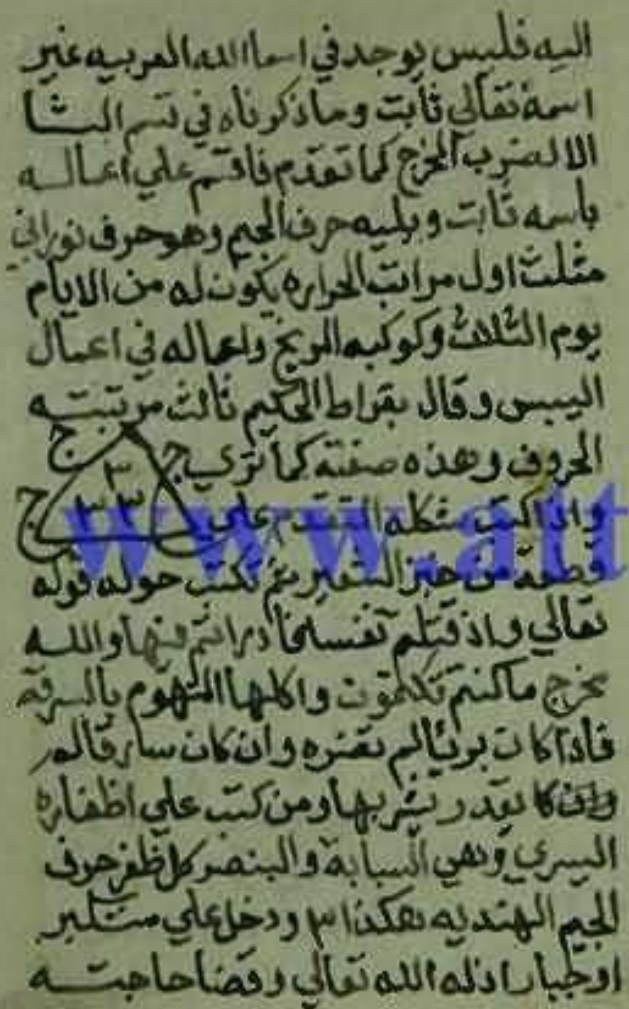 اليه فليس يوجد في اسما الله العربيه غير
اسمه تعالي ثابت وما ذكرناه في قسم الثا
الا لضرب المخرج كما تقدم فاقسم علي اعماله
باسمه ثابت ويليه حرف الجيم وهو حرف نوراني
مثلث اول مراتب الحراره يكون له من الايام
يوم الثلاث وكوكبه المريخ واعماله في اعمال
اليبس وقال بقراط الحكيم ثالث مرتبته
الحروف وهذه صفته كما تري ج
ج
٣
ج ٣ ٣
واذا كتب شكله المتقدم علي
قطعة من خبز الشعير ثم تكتب حوله قوله
تعالي واذ قتلتم نفسا فادراتم فيها والله
مخرج ما كنتم تكتمون واكلها المتهوم بالسرقه
فاذا كان بريئا لم تضره وان كان سارقا لم
يقدر يشربها ومن كتب علي اظفاره
اليسري وهي السبابة والبنصر كل ظفر حرف
الجيم الهنديه هكذا ٣ ودخل علي متكبر
او جبار اذله الله تعالي وقضا حاجته
www.att